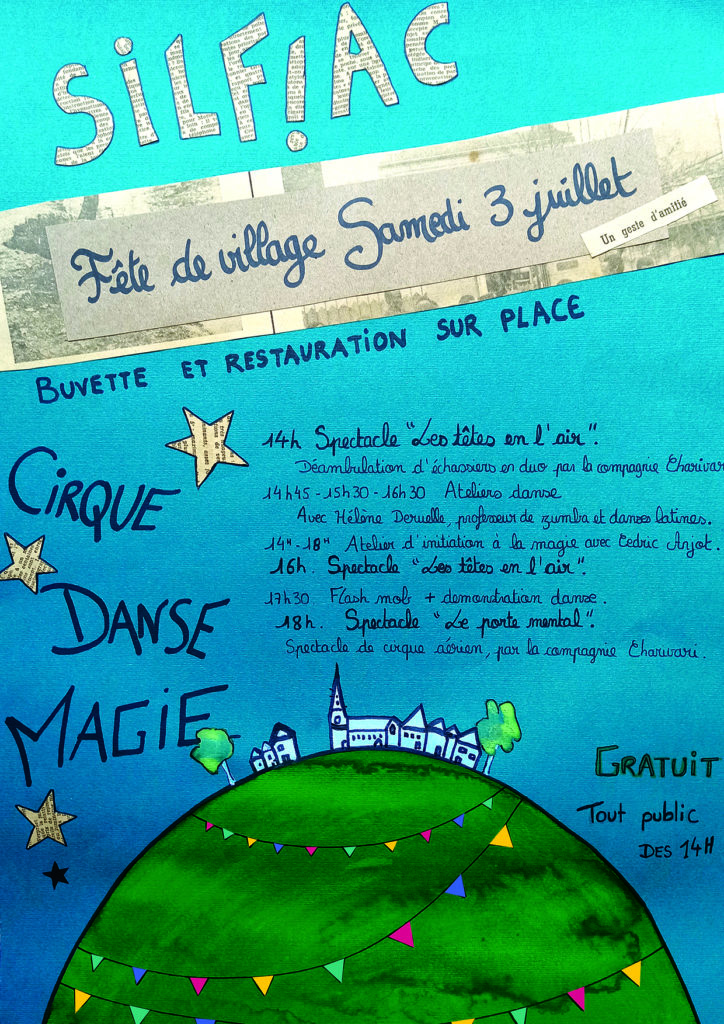 SiLFiAC
Fête de village Samedi 3 juillet
Un geste d'amitié
BUVETTE ET RESTAURATION SUR PLACE
CIRQUE
DANSE
MAGIE
14h Spectacle "Les têtes en l'air".
Déambulation d'échassiers en duo par la compagnie Charivari
14h45 - 15h30 - 16h30 Ateliers danse
Avec Hélène Deruelle, professeur de zumba et danses latines.
14H - 18H Atelier d'initiation à la magie avec Cedric Anjot.
16h. Spectacle "Les têtes en l'air".
17h30 Flash mob + demonstration danse.
18h. Spectacle "Le porte mental".
Spectacle de cirque aérien, par la compagnie Charivari.
GRATUIT
Tout public
DES 14H